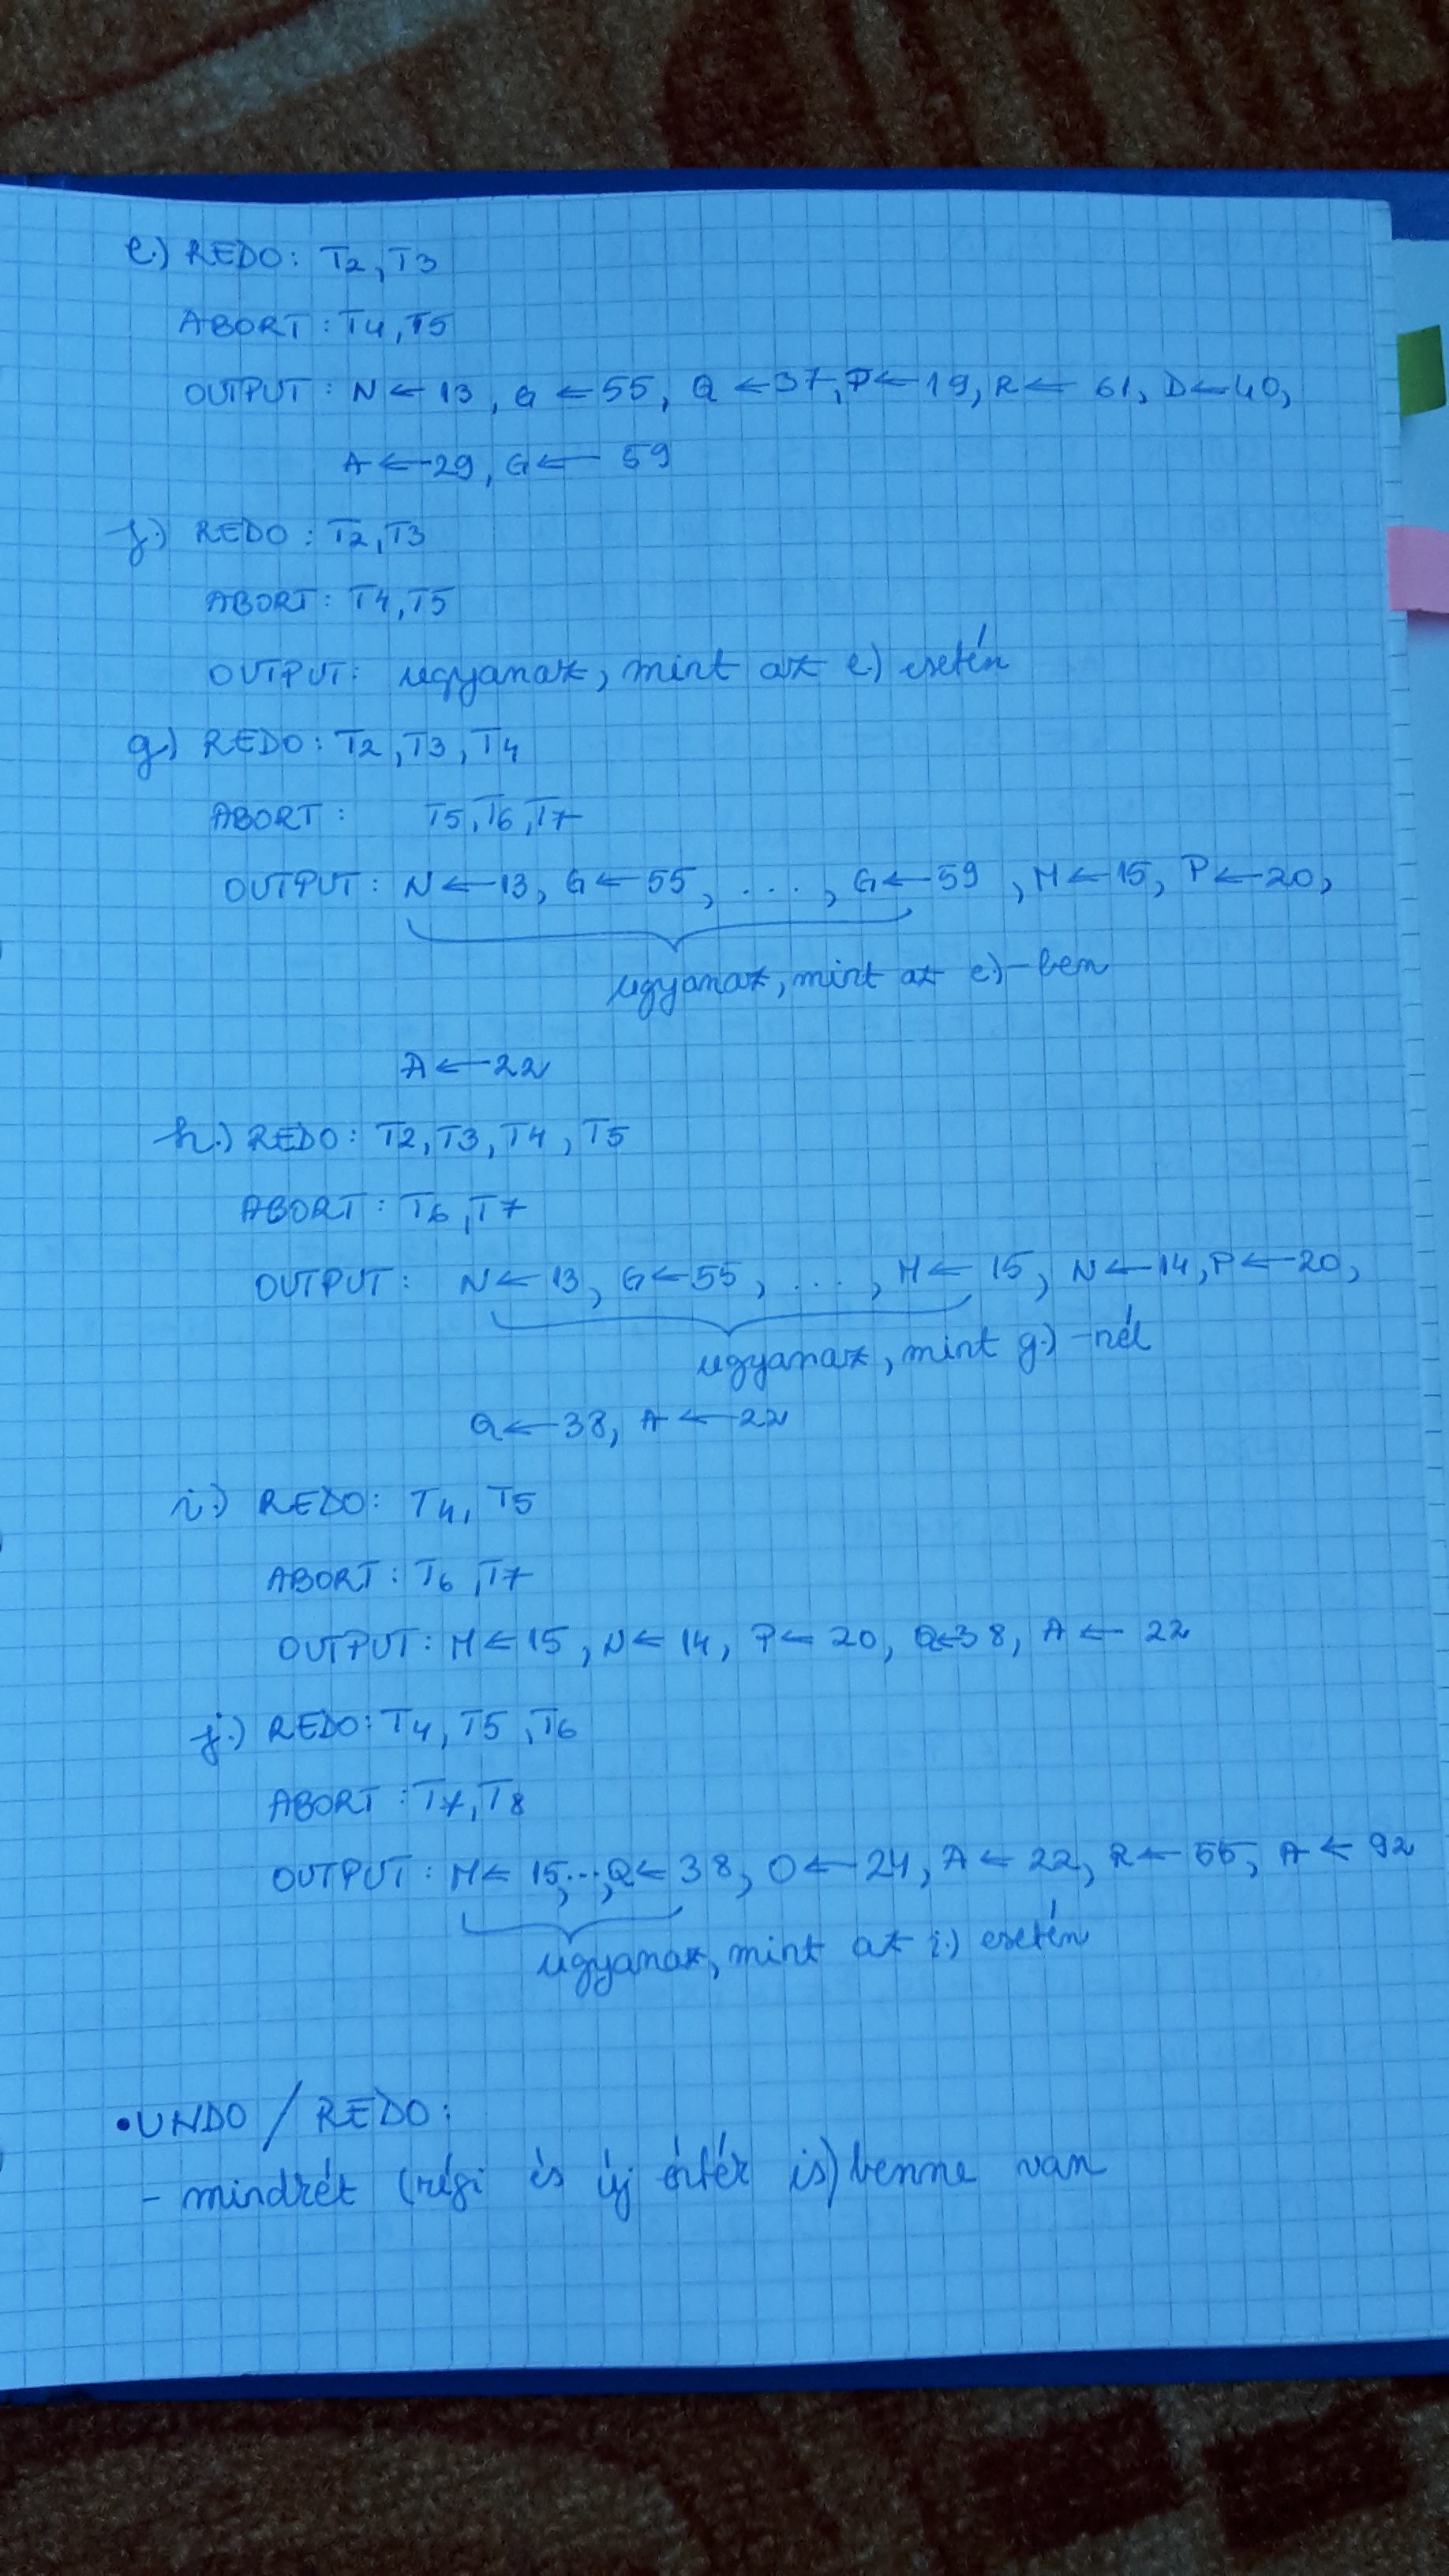 e.) REDO: T2, T3
ABORT: T4, T5
OUTPUT: N ← 13, G ← 55, Q ← 37, P ← 19, R ← 61, D ← 40,
A ← 29, G ← 59
f.) REDO: T2, T3
ABORT: T4, T5
OUTPUT: ugyanaz, mint az e.) esetén
g.) REDO: T2, T3, T4
ABORT: T5, T6, T7
OUTPUT: N ← 13, G ← 55, ..., G ← 59, M ← 15, P ← 20,
ugyanaz, mint az e.)-ben
A ← 22
h.) REDO: T2, T3, T4, T5
ABORT: T6, T7
OUTPUT: N ← 13, G ← 55, ..., M ← 15, N ← 14, P ← 20,
ugyanaz, mint g.)-nél
Q ← 38, A ← 22
i.) REDO: T4, T5
ABORT: T6, T7
OUTPUT: M ← 15, N ← 14, P ← 20, Q ← 38, A ← 22
j.) REDO: T4, T5, T6
ABORT: T7, T8
OUTPUT: M ← 15, ..., Q ← 38, O ← 24, A ← 22, R ← 55, A ← 92
ugyanaz, mint az i.) esetén
• UNDO / REDO:
- mindkét (régi és új érték is) benne van